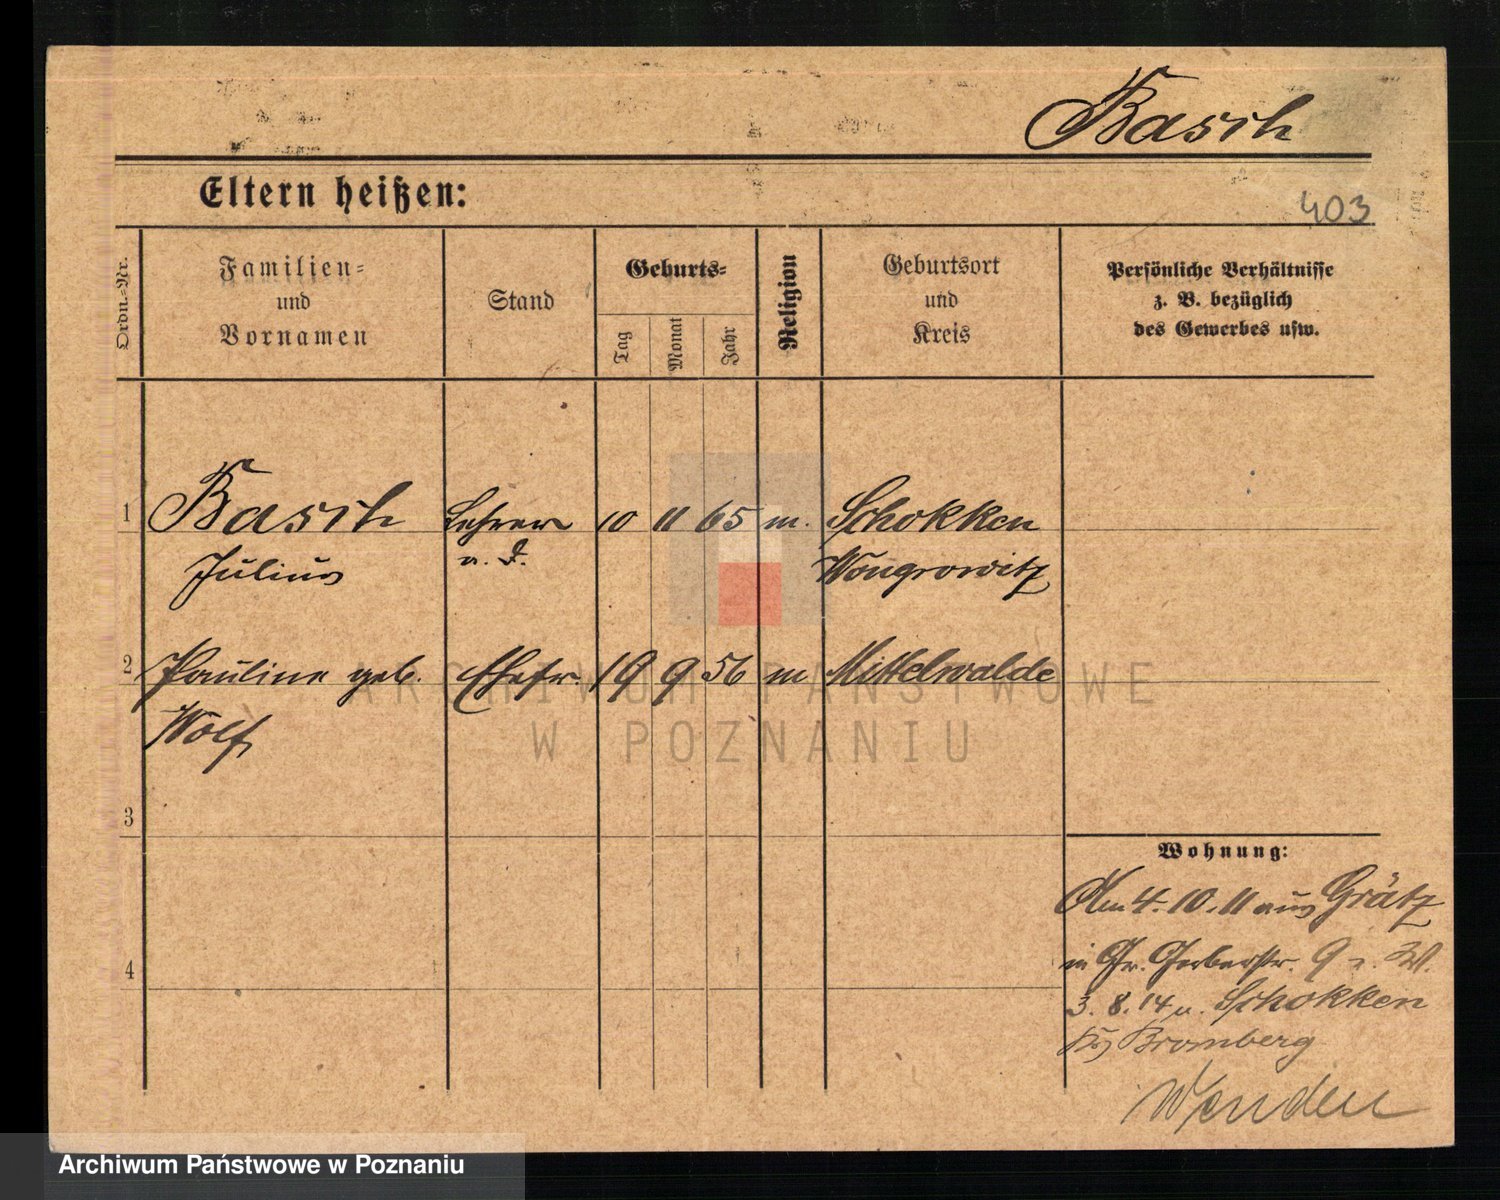 Basch
Eltern heißen:
403
Ordn.-Nr.
Familien-
und
Vornamen
Stand
Geburts-
Tag
Monat
Jahr
Religion
Geburtsort
und
Kreis
Persönliche Verhältnisse
z. B. bezüglich
des Gewerbes usw.
1 Basch Lehrer 10 11 65 m. Schokken
Julius a. D. Wongrowitz
2 Pauline geb. Ehefr. 19 9 56 m Mittelwalde
Wolf
ARCHIWUM PAŃSTWOWE
W POZNANIU
3
Wohnung:
Am 4. 10. 11 aus Grätz
in Gr. Gerberstr. 9 z. W.
4
3. 8. 14 n. Schokken
Bromberg
Wenden
Archiwum Państwowe w Poznaniu